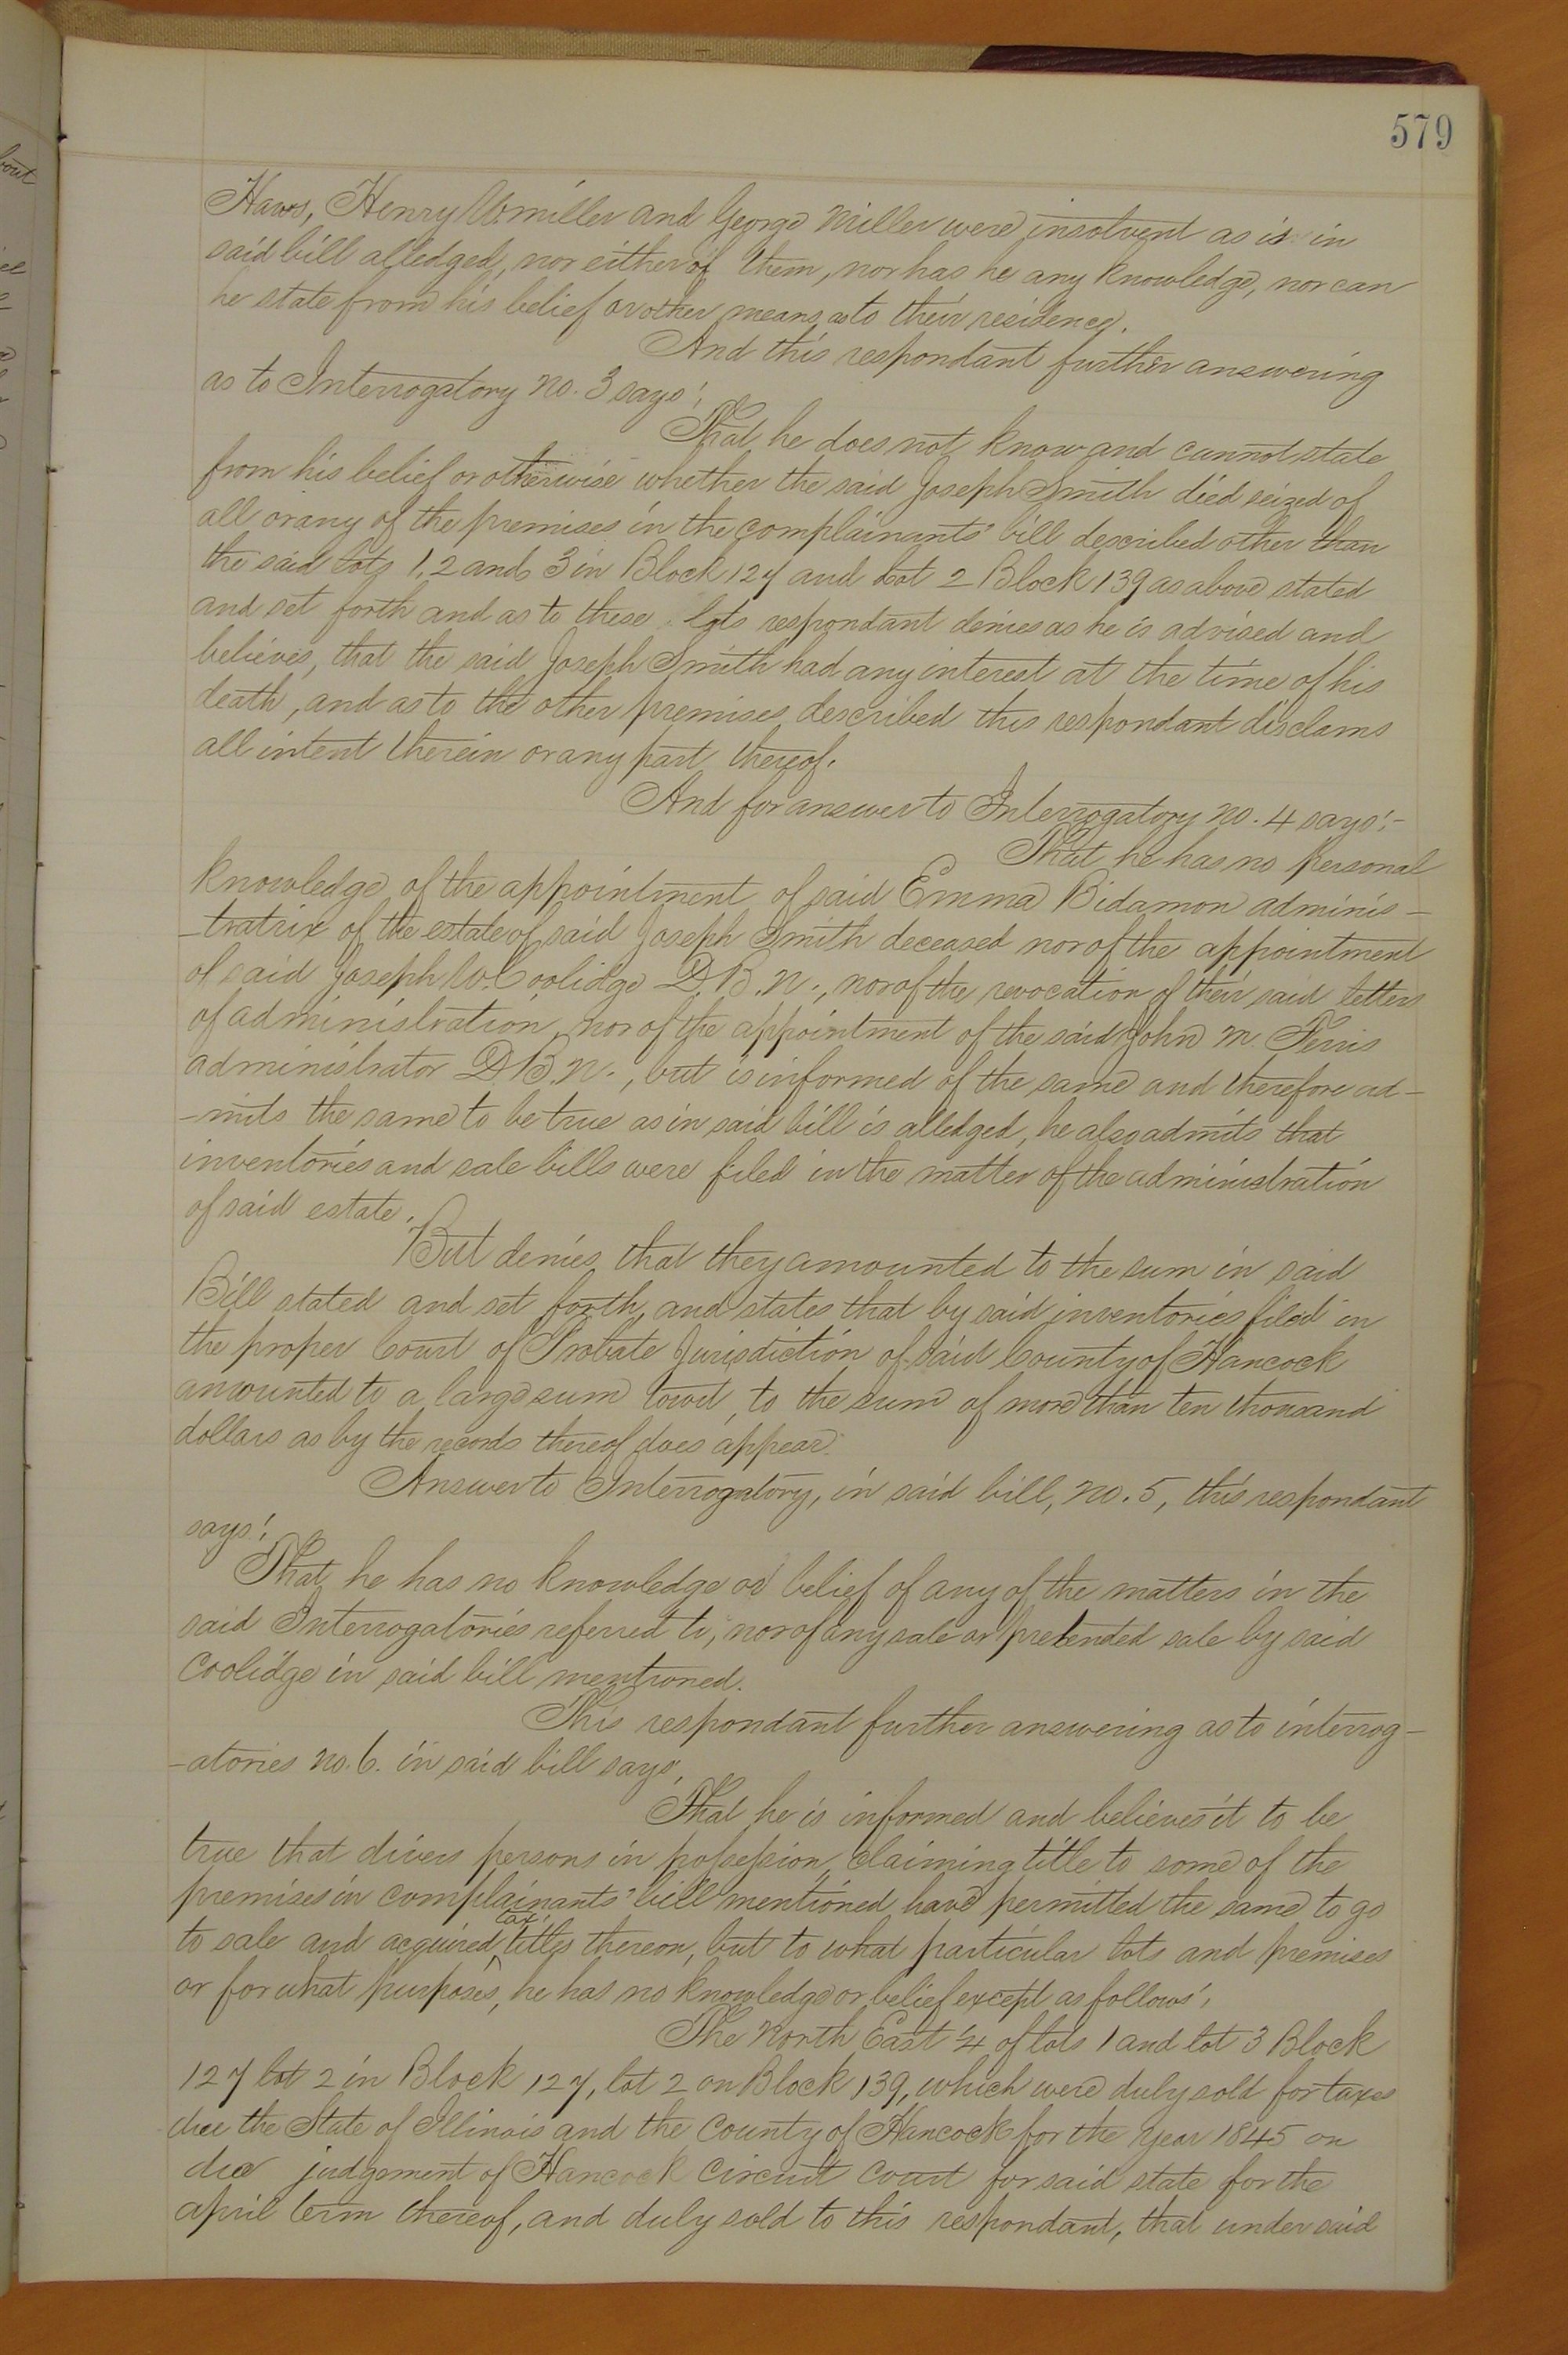 579
Haws, Henry W. Miller and George Miller were insolvent as is in
said bill alledged, nor either of them, nor has he any knowledge, nor can
he state from his belief or other means as to their residence.
And this respondant further answering
as to Interrogatory No. 3 says:
That he does not know and cannot state
from his belief or otherwise whether the said Joseph Smith died seized of
all or any of the premises in the complainants' bill described other than
the said lots 1, 2 and 3 in Block 127 and Lot 2 Block 139 as above stated
and set forth and as to these lots respondant denies as he is advised and
believes, that the said Joseph Smith had any interest at the time of his
death, and as to the other premises described this respondant disclams
all intent therein or any part thereof.
And for answer to Interrogatory No. 4 says:-
That he has no personal
knowledge of the appointment of said Emma Bidamon adminis-
-tratrix of the estate of said Joseph Smith deceased nor of the appointment
of said Joseph W. Coolidge D.B.N., nor of the revocation of their said letters
of administration, nor of the appointment of the said John M. Ferris
administrator D.B.N., but is informed of the same and therefore ad-
-mits the same to be true as in said bill is alledged, he also admits that
inventories and sale bills were filed in the matter of the administration
of said estate.
But denies that they amounted to the sum in said
Bill stated and set forth, and states that by said inventories filed in
the proper Court of Probate Jurisdiction of said County of Hancock
amounted to a large sum towit, to the sum of more than ten thousand
dollars as by the records thereof does appear.
Answer to Interrogatory, in said bill, No. 5, this respondant
says:
That he has no knowledge or belief of any of the matters in the
said Interrogatories referred to, nor of any sale or pretended sale by said
Coolidge in said bill mentioned.
This respondant further answering as to interrog-
-atories No. 6. in said bill says,
That he is informed and believes it to be
true that divers persons in possession, claiming title to some of the
premises in complainants' bill mentioned have permitted the same to go
tax
to sale and acquired titles thereon, but to what particular lots and premises
or for what purposes, he has no knowledge or belief except as follows:
The North East ¼ of lots 1 and lot 3 Block
127 lot 2 in Block 127, lot 2 on Block 139, which were duly sold for taxes
due the State of Illinois and the County of Hancock for the year 1845 on
due judgement of Hancock Circuit Court for said state for the
april term thereof, and duly sold to this respondant, that under said